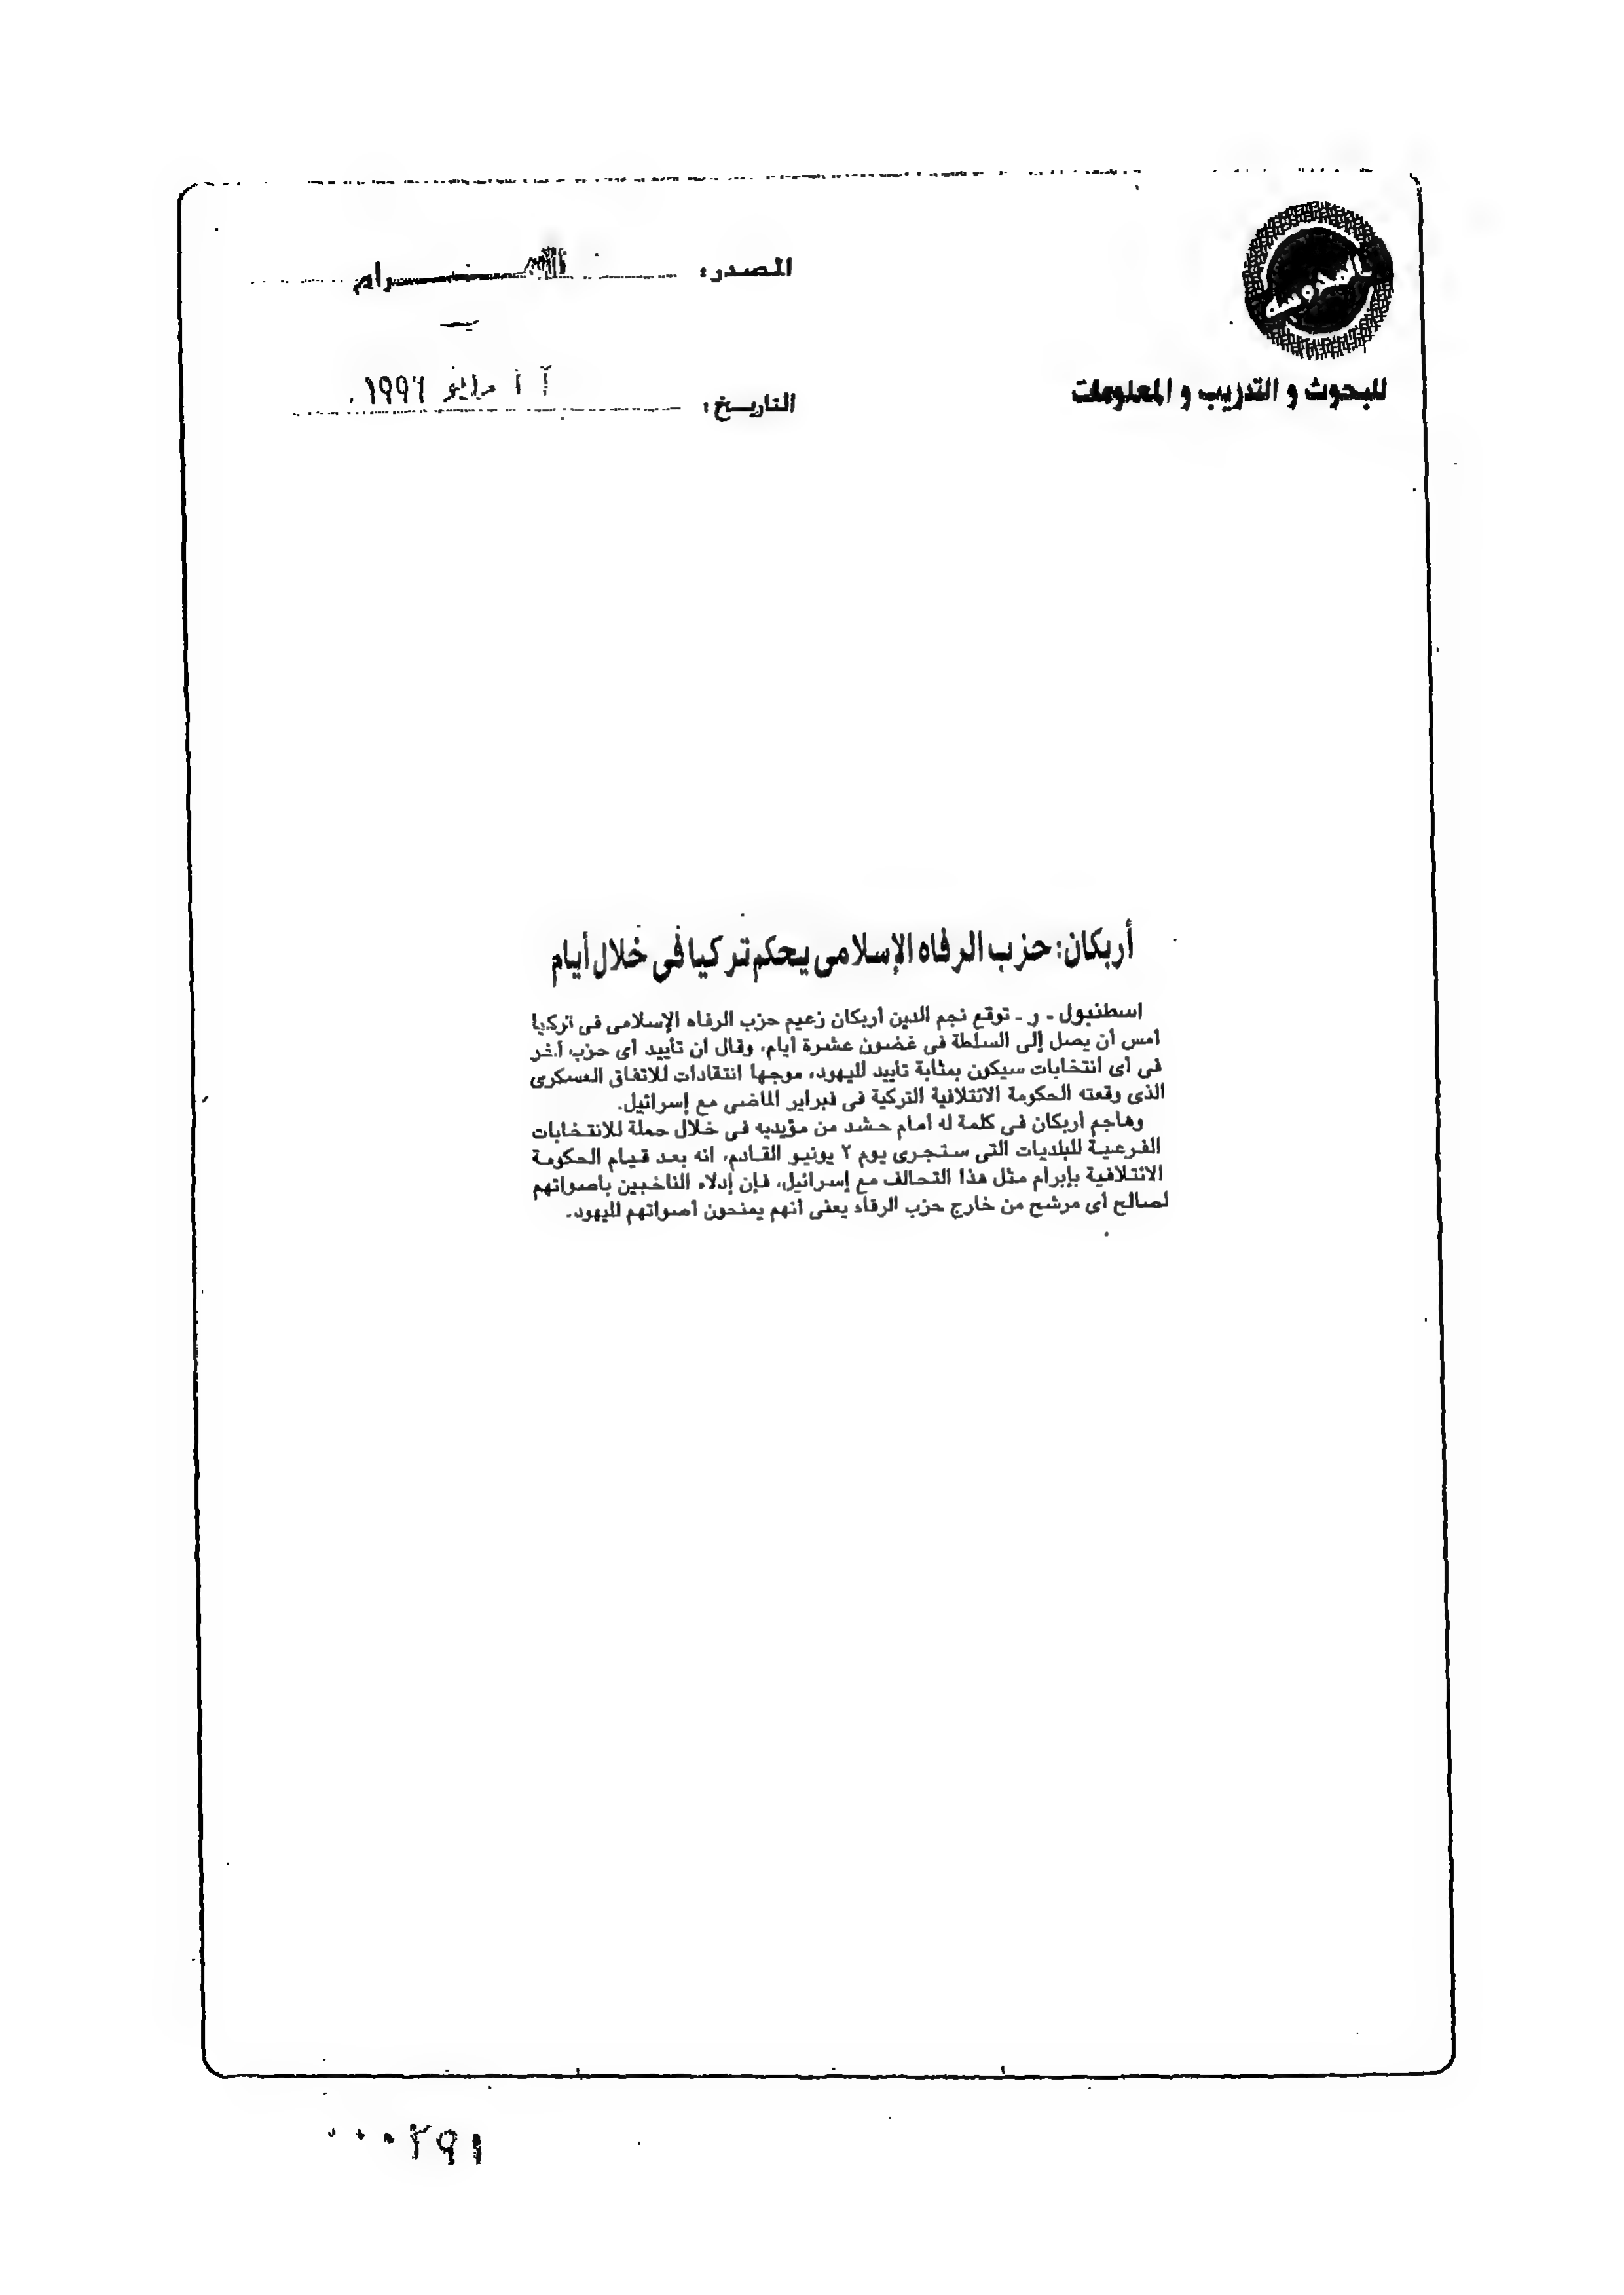 المحروسة
للبحوث و التدريب و المعلومات
المصدر:
التاريخ: مايو ١٩٩٦
أربكان: حزب الرفاه الإسلامى يحكم تركيا فى خلال أيام
اسطنبول - ر - توقع نجم الدين أربكان زعيم حزب الرفاه الإسلامى فى تركيا
أمس أن يصل إلى السلطة فى غضون عشرة أيام، وقال ان تأييد أى حزب آخر
فى أى انتخابات سيكون بمثابة تأييد لليهود، موجها انتقادات للاتفاق العسكرى
الذى وقعته الحكومة الائتلافية التركية فى فبراير الماضى مع إسرائيل.
وهاجم أربكان فى كلمة له أمام حشد من مؤيديه فى خلال حملة للانتخابات
الفرعية للبلديات التى ستجرى يوم ٢ يونيو القادم، انه بعد قيام الحكومة
الائتلافية بإبرام مثل هذا التحالف مع إسرائيل، فإن إدلاء الناخبين بأصواتهم
لصالح أى مرشح من خارج حزب الرفاه يعنى أنهم يمنحون أصواتهم لليهود.